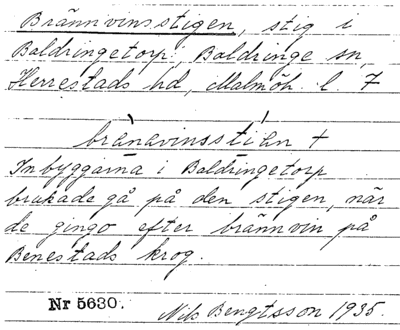 Brännvinsstigen, stig i
Baldringetorp, Baldringe sn,
Herrestads hd, Malmöh. l. 7
bränavinsstiän +
Inbyggarna i Baldringetorp
brukade gå på den stigen, när
de gingo efter brännvin på
Benestads krog.
Nr 5630.
Nils Bengtsson 1935.